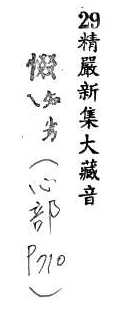 29精嚴新集大藏音
惙、知劣(心部P710)